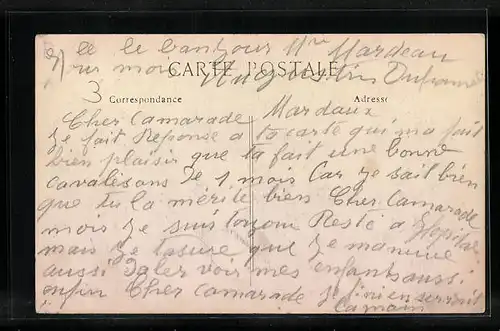 le bonjour Mr Mardeau
Vous mon Augustin
CARTE POSTALE
3 Correspondance Adresse
Cher Camarade Mardaux
Je fait Reponse a ta carte qui ma fait
bien plaisir que ta fait une bonne
cavalésons De 1 mois Car Je sait bien
que tu la mérite bien Cher Camarade
mois Je suis toujour Resté a
mais Je tasure que Je
aussi Daler voir mes enfants aussi
enfin Cher camarade Je fini en serrait
la main